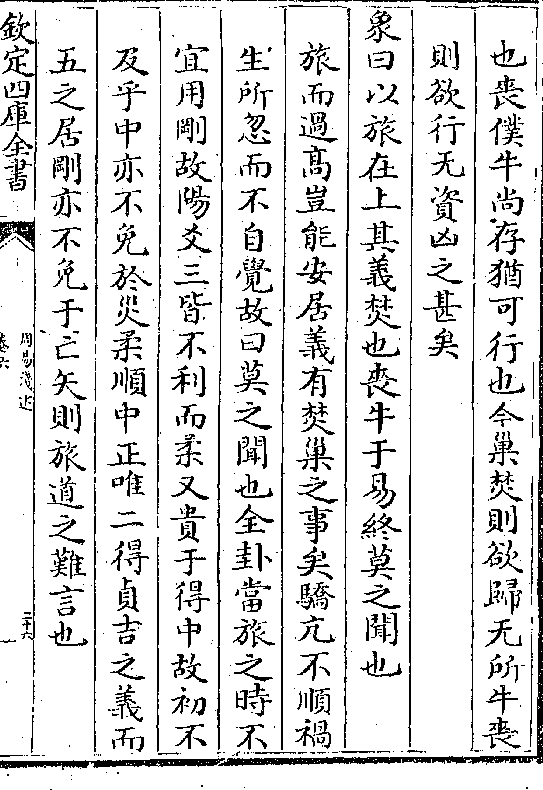 也喪僕牛尚存猶可行也今巢焚則欲歸无所牛喪
則欲行无資凶之甚矣
象曰以旅在上其義焚也喪牛于易終莫之聞也
旅而過高豈能安居義有焚巢之事矣驕亢不順禍
生所忽而不自覺故曰莫之聞也全卦當旅之時不
宜用剛故陽爻三皆不利而柔又貴于得中故初不
及乎中亦不免於災柔順中正唯二得貞吉之義而
五之居剛亦不免于亡矢則旅道之難言也
欽定四庫全書
周易淺述
卷六
二十六